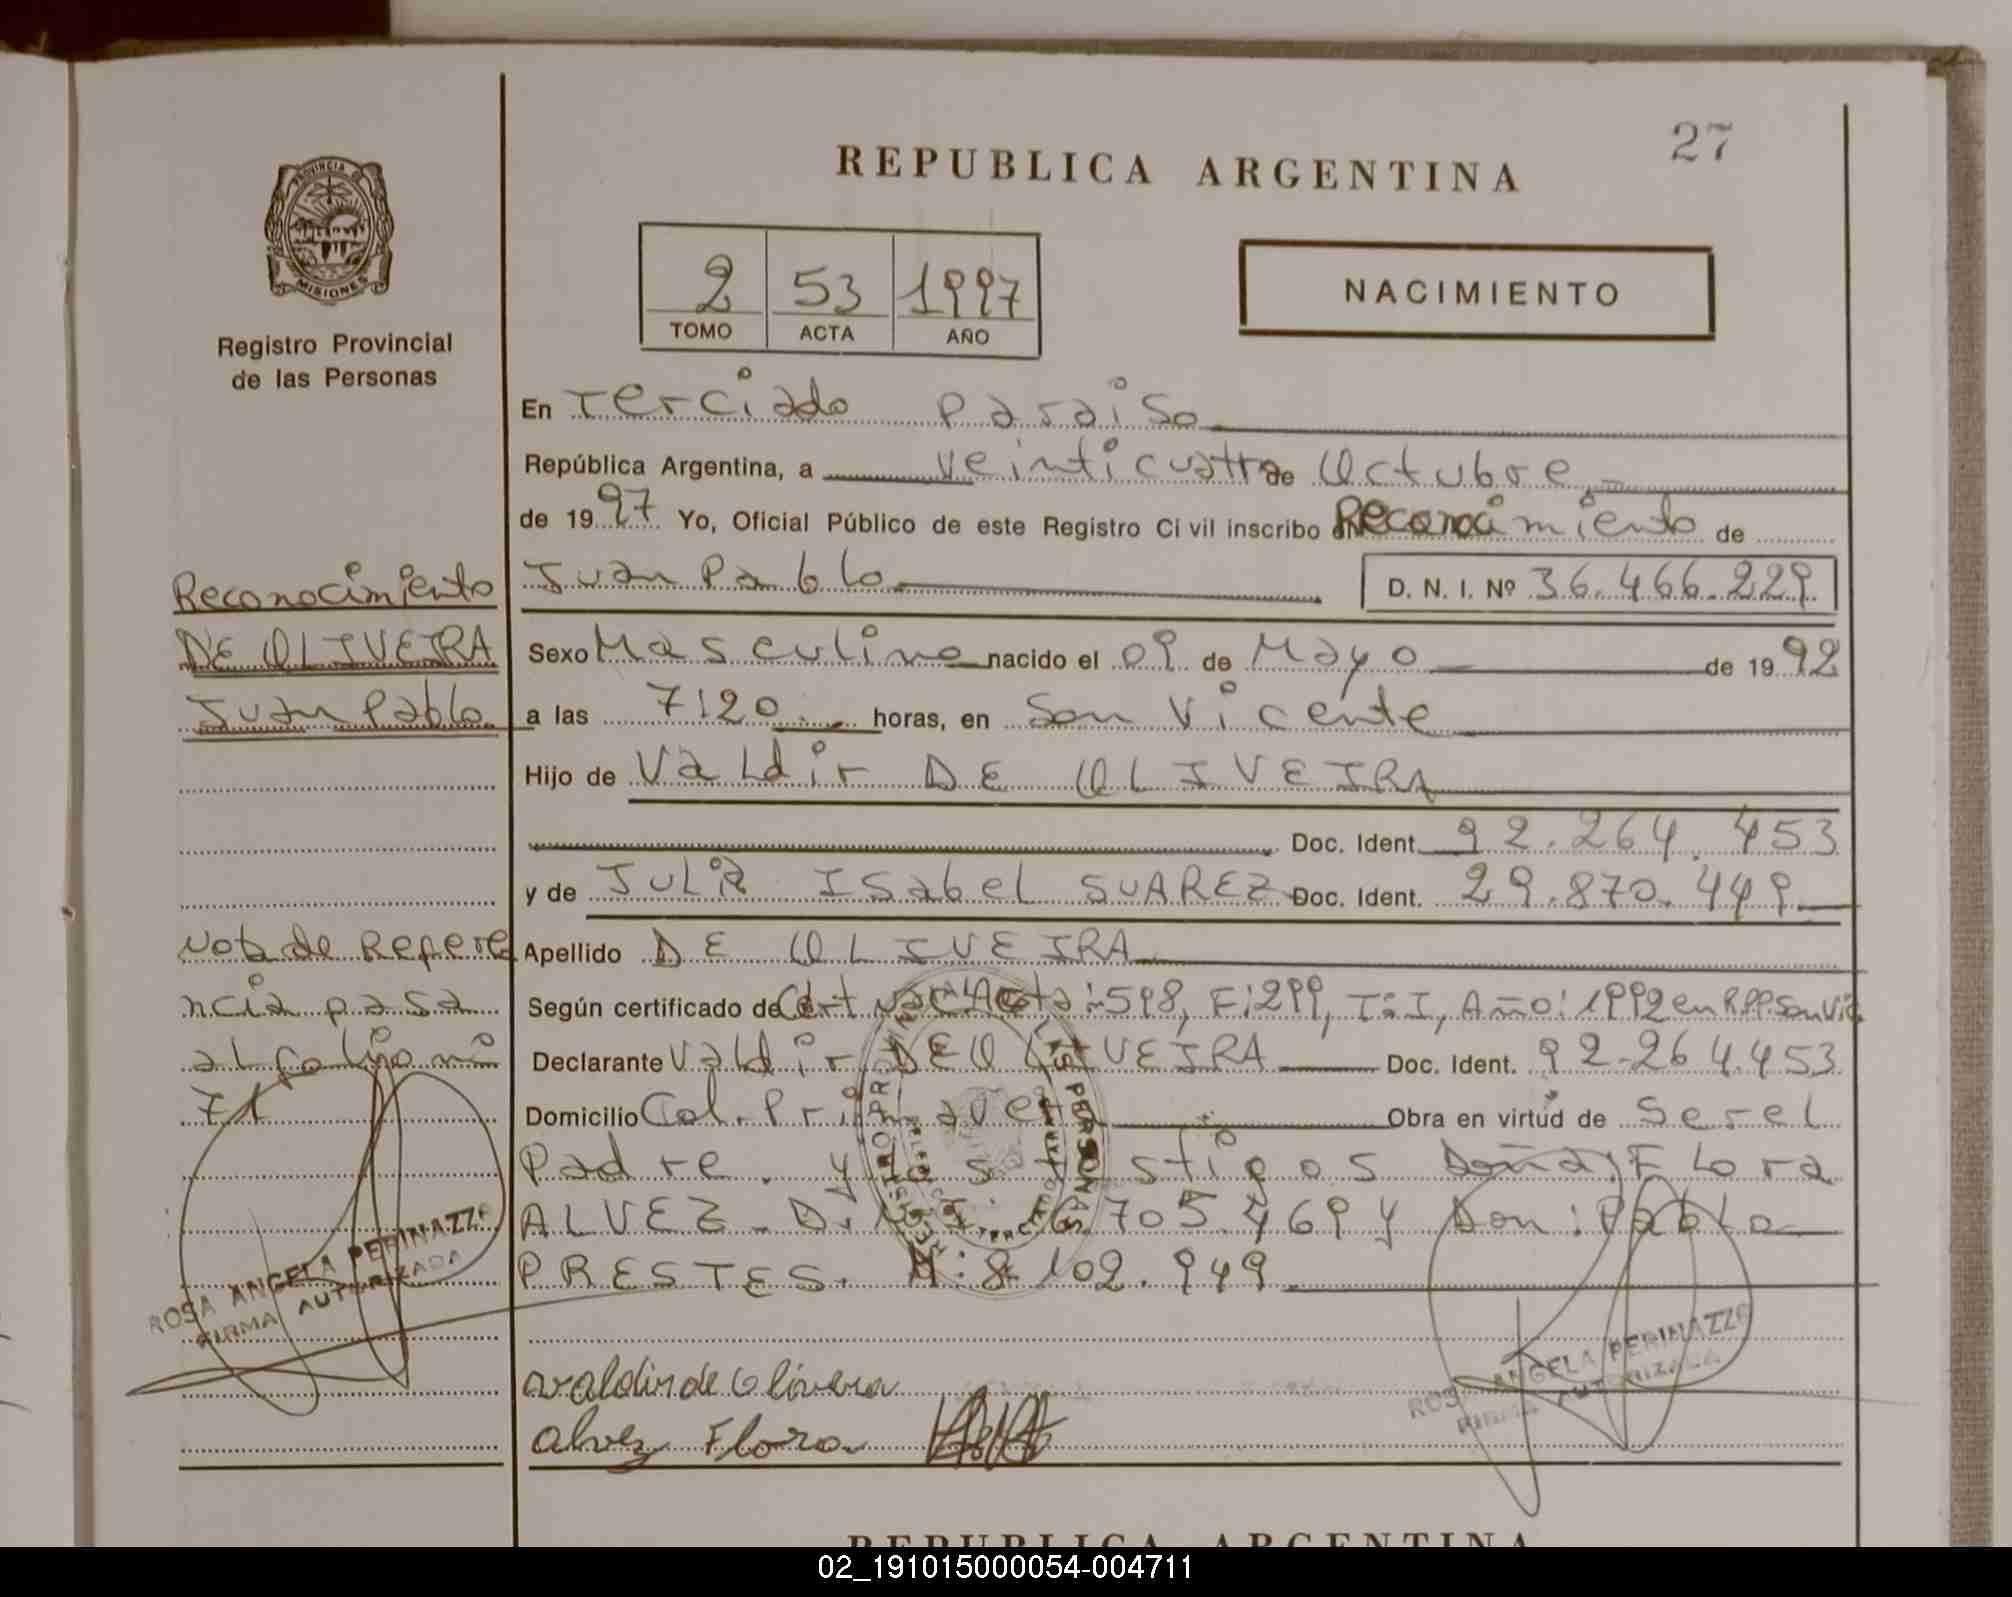 27
REPUBLICA ARGENTINA
PROVINCIA DE
MISIONES
Registro Provincial
de las Personas
2 53 1997
TOMO ACTA AÑO
NACIMIENTO
En Terciado Paraiso
República Argentina, a veinticuatro de Octubre
de 1997 Yo, Oficial Público de este Registro Civil inscribo el Reconocimiento de
Juan Pablo D. N. I. Nº 36.466.229
Sexo Masculino nacido el 09 de Mayo de 1992
a las 7:20 horas, en San Vicente
Hijo de Valdir DE OLIVEIRA
Doc. Ident. 92.264.453
y de Julia Isabel SUAREZ Doc. Ident. 29.870.449
Apellido DE OLIVEIRA
Según certificado de Cert Nac Acta:598, F:299, T:I, Año:1992 en RPP. San Vic
Declarante Valdir DE OLIVEIRA Doc. Ident. 92.264.453
Domicilio Col. Primavera Obra en virtud de Ser el
Padre. y los testigos Doña: Flora
ALVEZ - D.N.I. 6.705.469 y Don: Pablo
PRESTES. M:8.102.949
valdir de Olivera
alvez Flora
Reconocimiento
DE OLIVEIRA
Juan Pablo
Nota de Refere
ncia pasa
al folio nº
71
ROSA ANGELA PERINAZZO
FIRMA AUTORIZADA
ROSA ANGELA PERINAZZO
FIRMA AUTORIZADA
REPUBLICA ARGENTINA
02_191015000054-004711